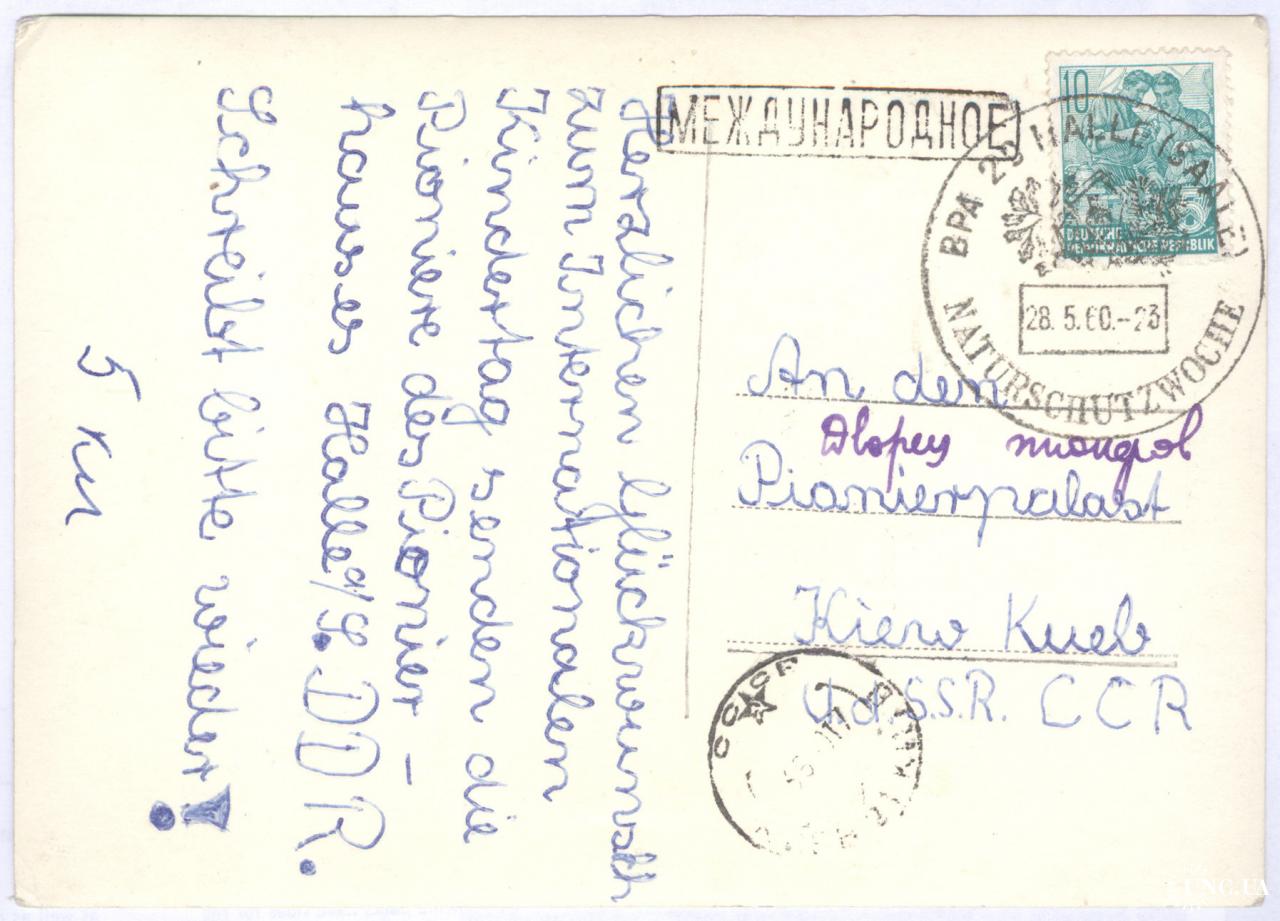 Herzlichen Glückwunsch
zum Internationalen
Kindertag senden die
Pioniere des Pionier-
hauses Halle a/S. DDR.
Schreibt bitte wieder!
5 км
МЕЖДУНАРОДНОЕ
10
DEUTSCHE
DEMOKRATISCHE REPUBLIK
BPA 23 HALLE (SAALE)
28.5.60.-23
NATURSCHUTZWOCHE
An den
Дворец пионеров
Pionierpalast
Kiew Киев
U.d.S.S.R. CCR
CCCP
UNC.UA